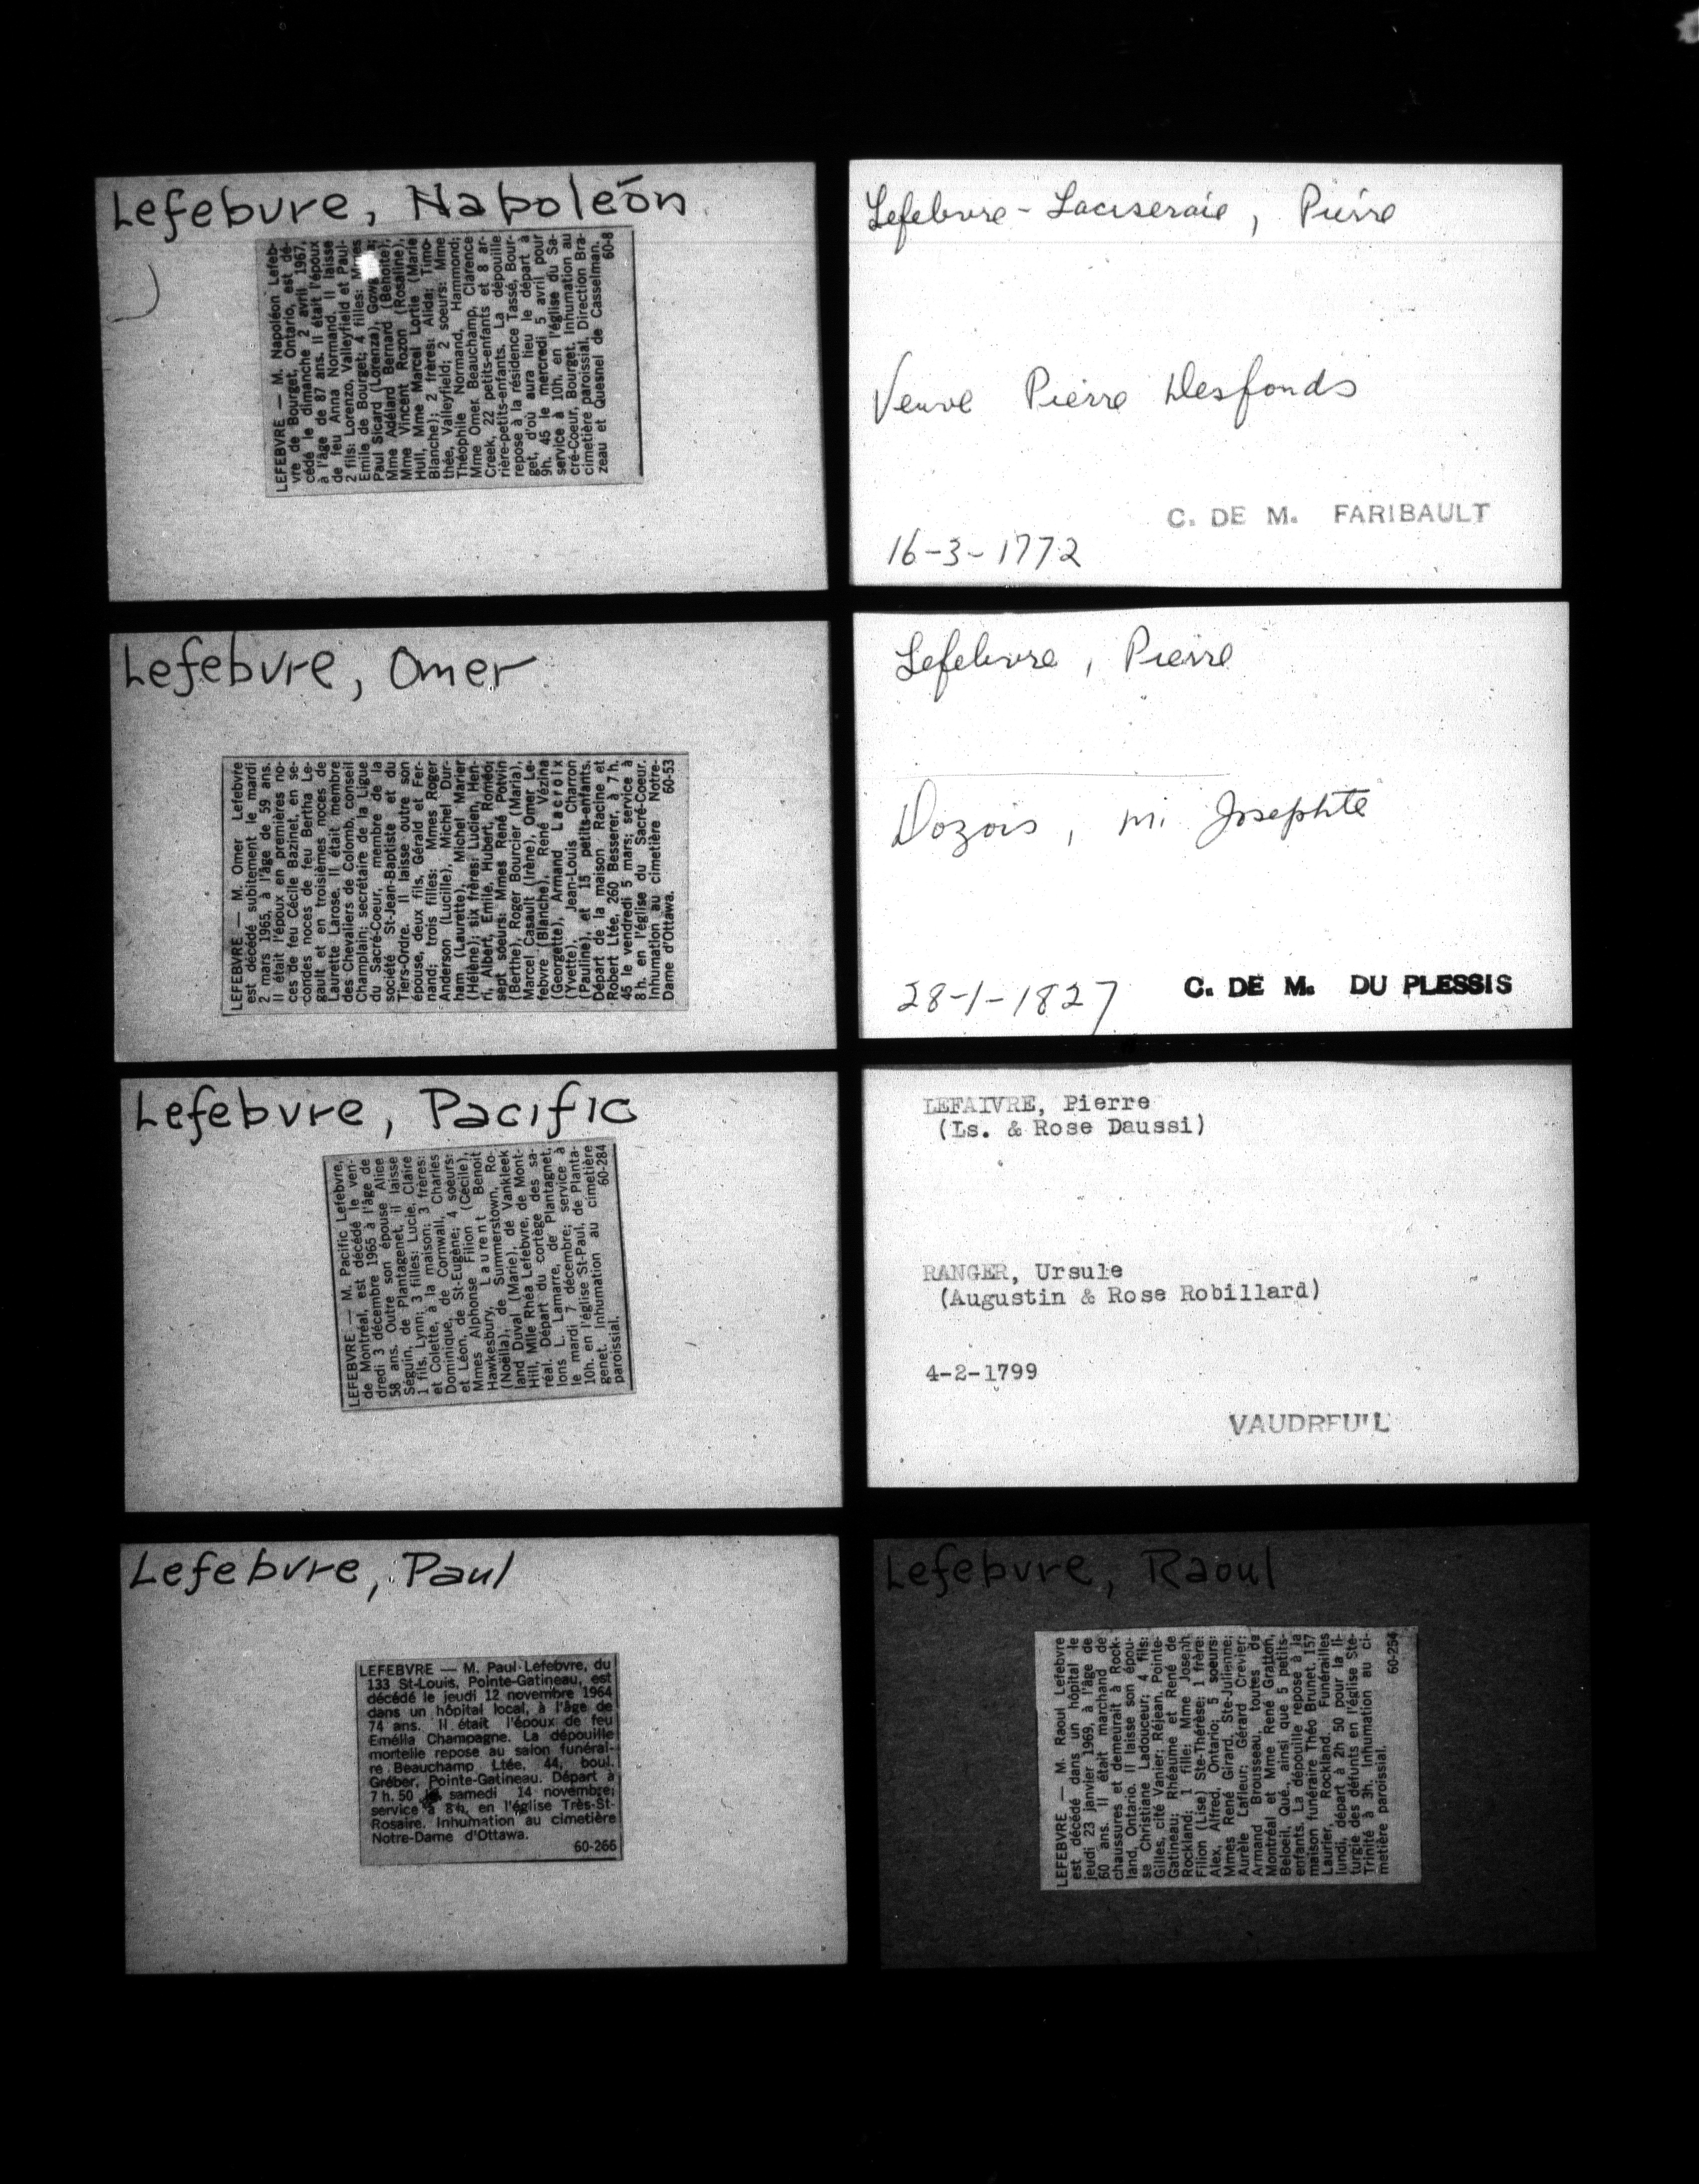 Lefebvre, Napoléon
LEFEBVRE — M. Napoléon Lefeb-
vre de Bourget, Ontario, est dé-
cédé le dimanche 2 avril 1967,
à l'âge de 87 ans. Il était l'époux
de feu Anna Normand. Il laisse
2 fils: Lorenzo, Valleyfield et Paul-
Emile de Bourget; 4 filles: Mmes
Paul Sicard (Lorenza),
Mme Adélard Bernard (Benoîte);
Mme Vincent Rozon (Rosaline),
Hull, Mme Marcel Lortie (Marie
Blanche); 2 frères: Alida; Timo-
thée, Valleyfield; 2 soeurs: Mme
Théophile Normand, Hammond;
Mme Omer Beauchamp, Clarence
Creek, 22 petits-enfants et 8 ar-
rière-petits-enfants. La dépouille
repose à la résidence Tassé, Bour-
get, d'où aura lieu le départ à
9h. 45 le mercredi 5 avril pour
service à 10h. en l'église du Sa-
cré-Coeur, Bourget. Inhumation au
cimetière paroissial. Direction Bra-
zeau et Quesnel de Casselman.
60-8
Lefebvre, Omer
LEFEBVRE — M. Omer Lefebvre
est décédé subitement le mardi
2 mars 1965, à l'âge de 59 ans.
Il était l'époux en premières no-
ces de feu Cécile Bazinet, en se-
condes noces de feu Bertha Le-
gault et en troisièmes noces de
Laurette Larose. Il était membre
des Chevaliers de Colomb, conseil
Champlain; secrétaire de la Ligue
du Sacré-Coeur, membre de la
société St-Jean-Baptiste et du
Tiers-Ordre. Il laisse outre son
épouse, deux fils, Gérald et Fer-
nand; trois filles: Mmes Roger
Anderson (Lucille), Michel Dur-
ham (Laurette), Michel Marier
(Hélène); six frères: Lucien, Hen-
ri, Albert, Emile, Hubert, Roméo;
sept soeurs: Mmes René Potvin
(Berthe), Roger Bourcier (Maria),
Marcel Casault (Irène), Omer Le-
febvre (Blanche), René Vézina
(Georgette), Armand Lacroix
(Yvette), Jean-Louis Charron
(Pauline), et 15 petits-enfants.
Départ de la maison Racine et
Robert Ltée, 260 Besserer, à 7 h.
45 le vendredi 5 mars; service à
8 h. en l'église du Sacré-Coeur.
Inhumation au cimetière Notre-
Dame d'Ottawa. 60-53
Lefebvre, Pacific
LEFEBVRE — M. Pacific Lefebvre,
de Montréal, est décédé le ven-
dredi 3 décembre 1965 à l'âge de
58 ans. Outre son épouse Alice
Séguin, de Plantagenet, il laisse
1 fils, Lynn; 3 filles: Lucie, Claire
et Colette, à la maison; 3 frères:
Dominique, de Cornwall, Charles
et Léon, de St-Eugène; 4 soeurs:
Mmes Alphonse Filion (Cécile),
Hawkesbury, Laurent Benoit
(Noëlla), de Summerstown, Ro-
land Duval (Marie), de Vankleek
Hill, Mlle Rhéa Lefebvre, de Mont-
réal. Départ du cortège des sa-
lons L. Lamarre, de Plantagnet,
le mardi 7 décembre; service à
10h. en l'église St-Paul, de Planta-
genet. Inhumation au cimetière
paroissial. 60-284
Lefebvre, Paul
LEFEBVRE — M. Paul Lefebvre, du
133 St-Louis, Pointe-Gatineau, est
décédé le jeudi 12 novembre 1964
dans un hôpital local, à l'âge de
74 ans. Il était l'époux de feu
Emélia Champagne. La dépouille
mortelle repose au salon funérai-
re Beauchamp Ltée, 44, boul.
Gréber, Pointe-Gatineau. Départ à
7 h. 50 samedi 14 novembre;
service à 8h. en l'église Très-St-
Rosaire. Inhumation au cimetière
Notre-Dame d'Ottawa.
60-266
Lefebvre-Laciseraie, Pierre
Veuve Pierre Desfonds
C. DE M. FARIBAULT
16-3-1772
Lefebvre, Pierre
Dozois, m. Josephte
28-1-1827 C. DE M. DU PLESSIS
LEFAIVRE, Pierre
(Ls. & Rose Daussi)
RANGER, Ursule
(Augustin & Rose Robillard)
4-2-1799
VAUDREUIL
Lefebvre, Raoul
LEFEBVRE — M. Raoul Lefebvre
est décédé dans un hôpital le
jeudi 23 janvier 1969, à l'âge de
60 ans. Il était marchand de
chaussures et demeurait à Rock-
land, Ontario. Il laisse son épou-
se Christiane Ladouceur; 4 fils:
Gilles, cité Vanier; Réjean, Pointe-
Gatineau; Rhéaume et René de
Rockland; 1 fille: Mme Joseph
Filion (Lisa) Ste-Thérèse; 1 frère:
Alex, Alfred, Ontario; 5 soeurs:
Mmes René Girard, Ste-Julienne;
Aurèle Lafleur; Gérard Crevier;
Armand Brousseau, toutes de
Montréal et Mme René Gratton,
Beloeil, Qué., ainsi que 5 petits-
enfants. La dépouille repose à la
maison funéraire Théo Brunet, 157
Laurier, Rockland. Funérailles
lundi, départ à 2h 50 pour la li-
turgie des défunts en l'église Ste-
Trinité à 3h. Inhumation au ci-
metière paroissial. 60-254